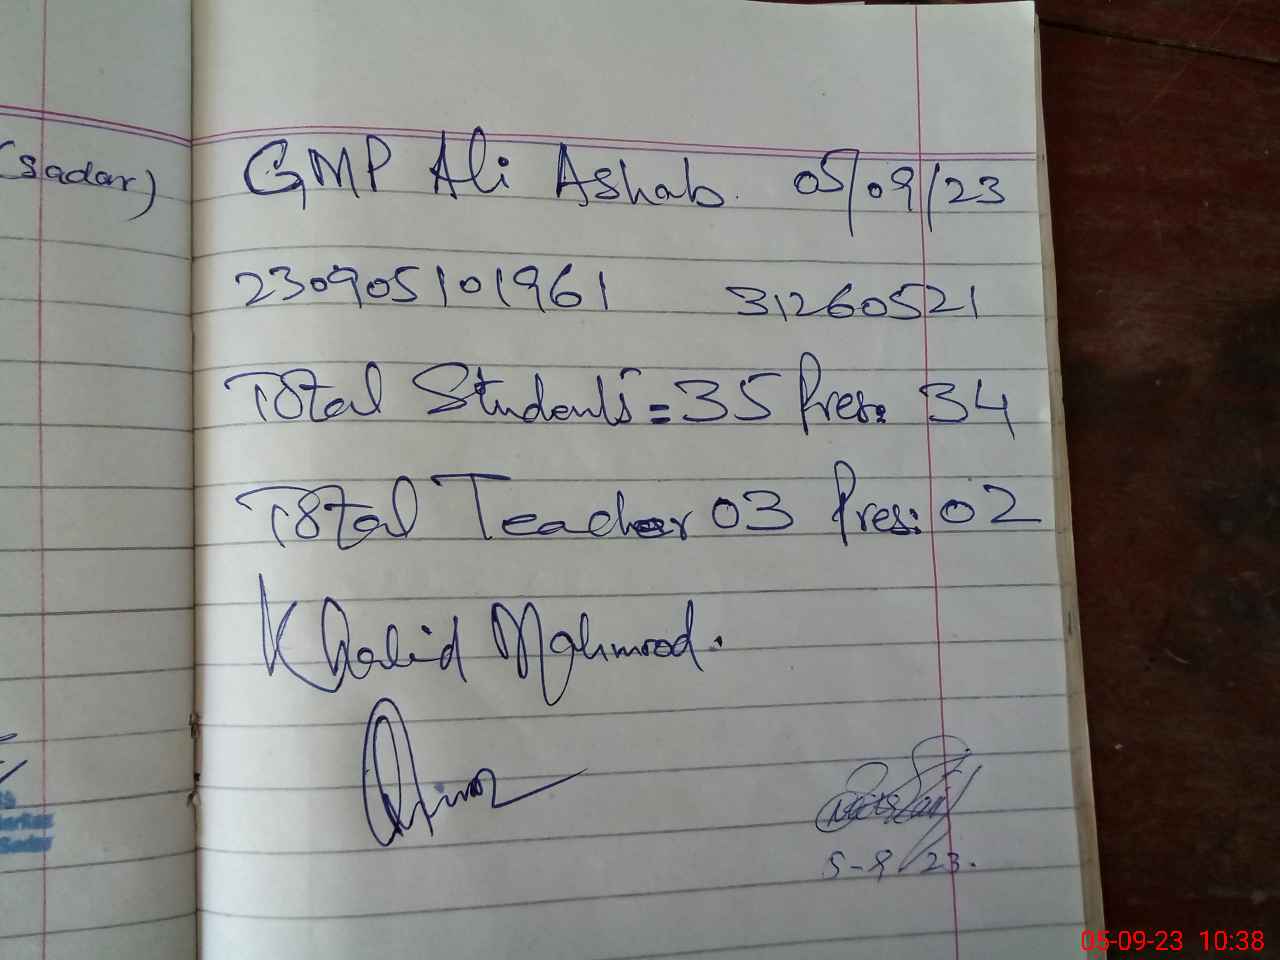 (Sadar)
GMP Ali Ashab. 05/09/23
230905101961 31260521
Total Students = 35 Pres: 34
Total Teacher 03 Pres: 02
Khalid Mahmood.
5-9/23.
05-09-23 10:38